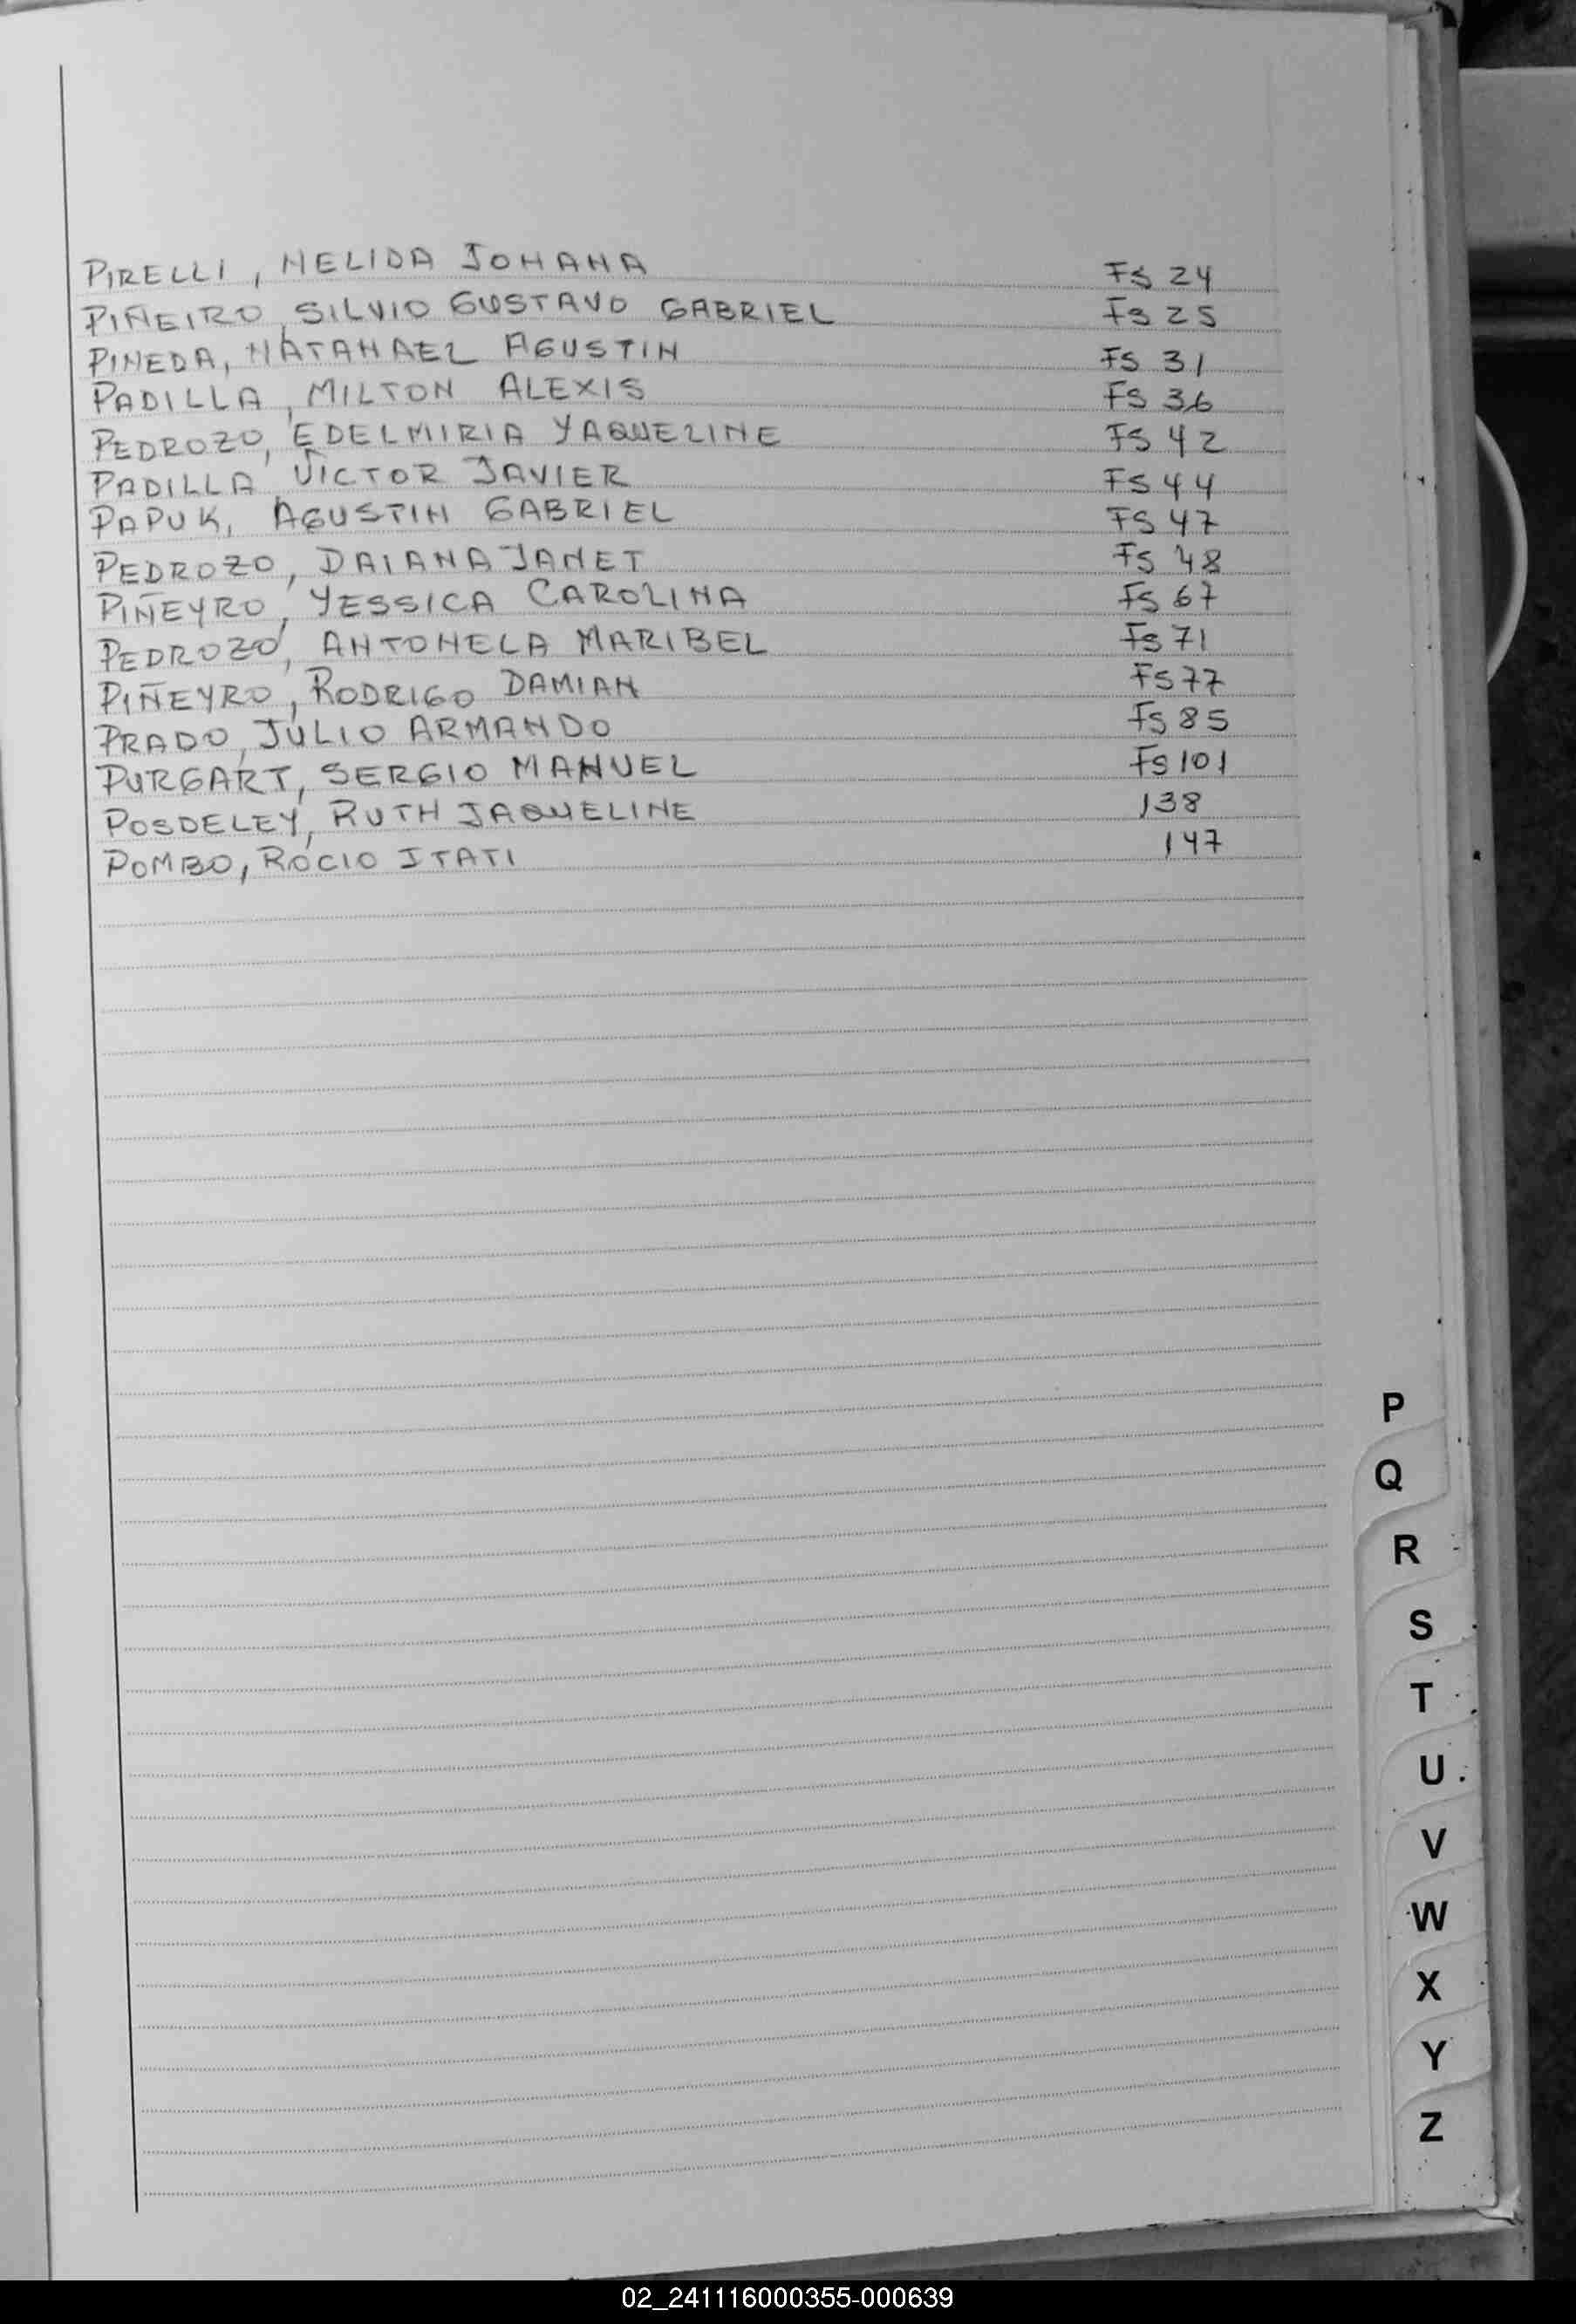 PIRELLI, NELIDA JOHANA FS 24
PIÑEIRO, SILVIO GUSTAVO GABRIEL FS 25
PINEDA, NATANAEL AGUSTIN FS 31
PADILLA, MILTON ALEXIS FS 36
PEDROZO, EDELMIRIA YAQUELINE FS 42
PADILLA VICTOR JAVIER FS 44
PAPUK, AGUSTIN GABRIEL FS 47
PEDROZO, DAIANA JANET FS 48
PIÑEYRO, YESSICA CAROLINA FS 67
PEDROZO, ANTONELA MARIBEL FS 71
PIÑEYRO, RODRIGO DAMIAN FS 77
PRADO, JULIO ARMANDO FS 85
PURGART, SERGIO MANUEL FS 101
POSDELEY, RUTH JAQUELINE 138
POMBO, ROCIO ITATI 147
P
Q
R
S
T
U
V
W
X
Y
Z
02_241116000355-000639